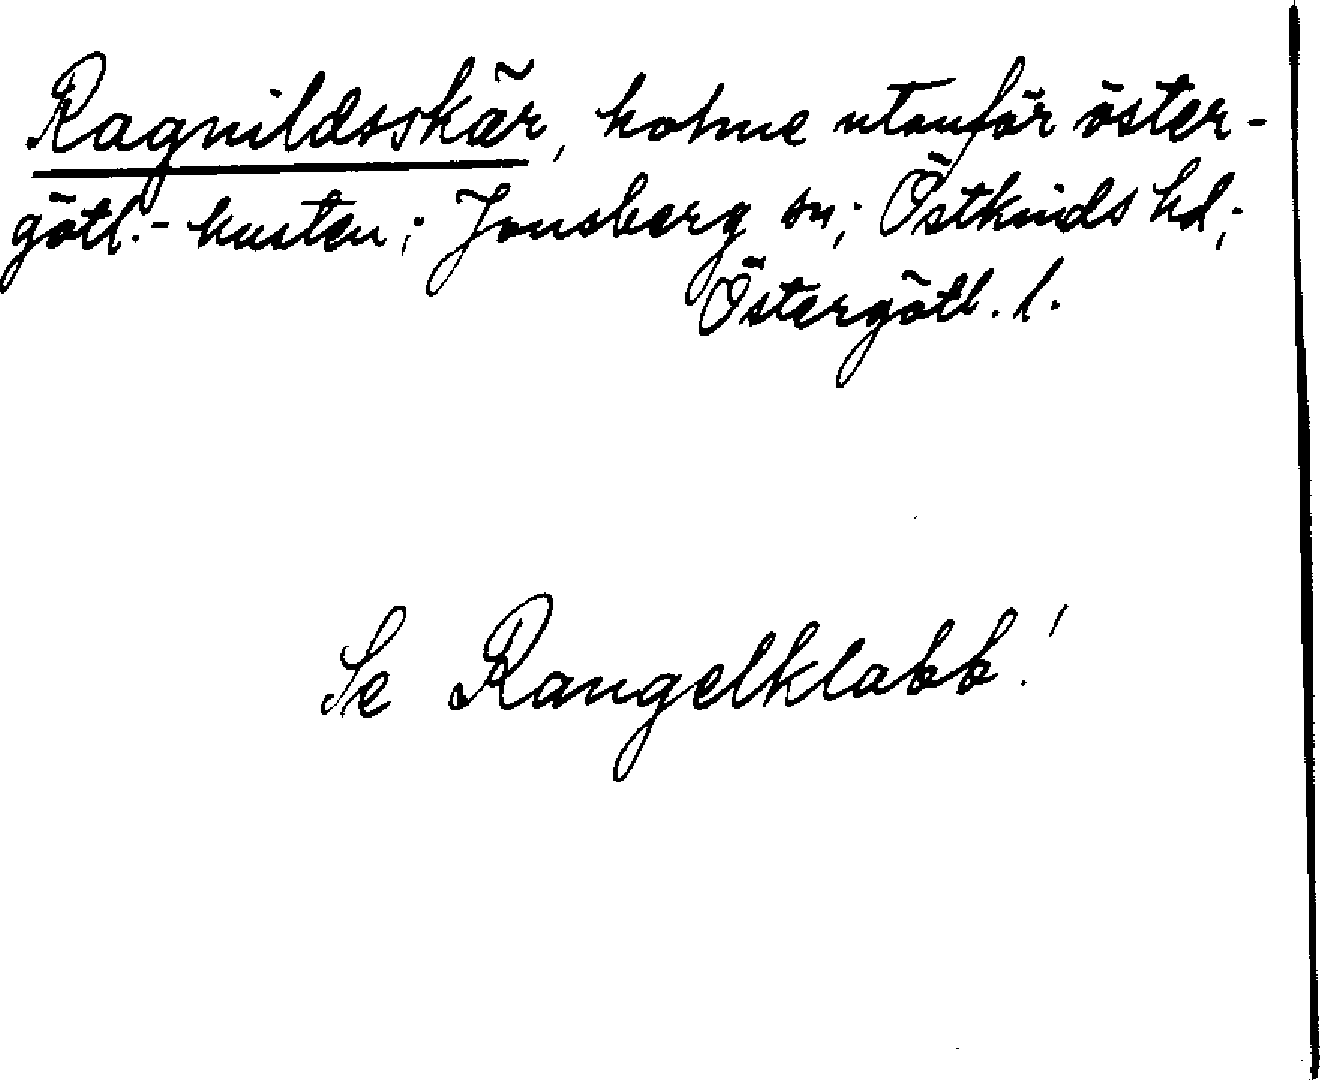 Ragnildsskär, holme utanför öster-
götl.-kusten; Jonsberg sn; Östkinds hd;
Östergötl. l.
Se Rangelklabb!